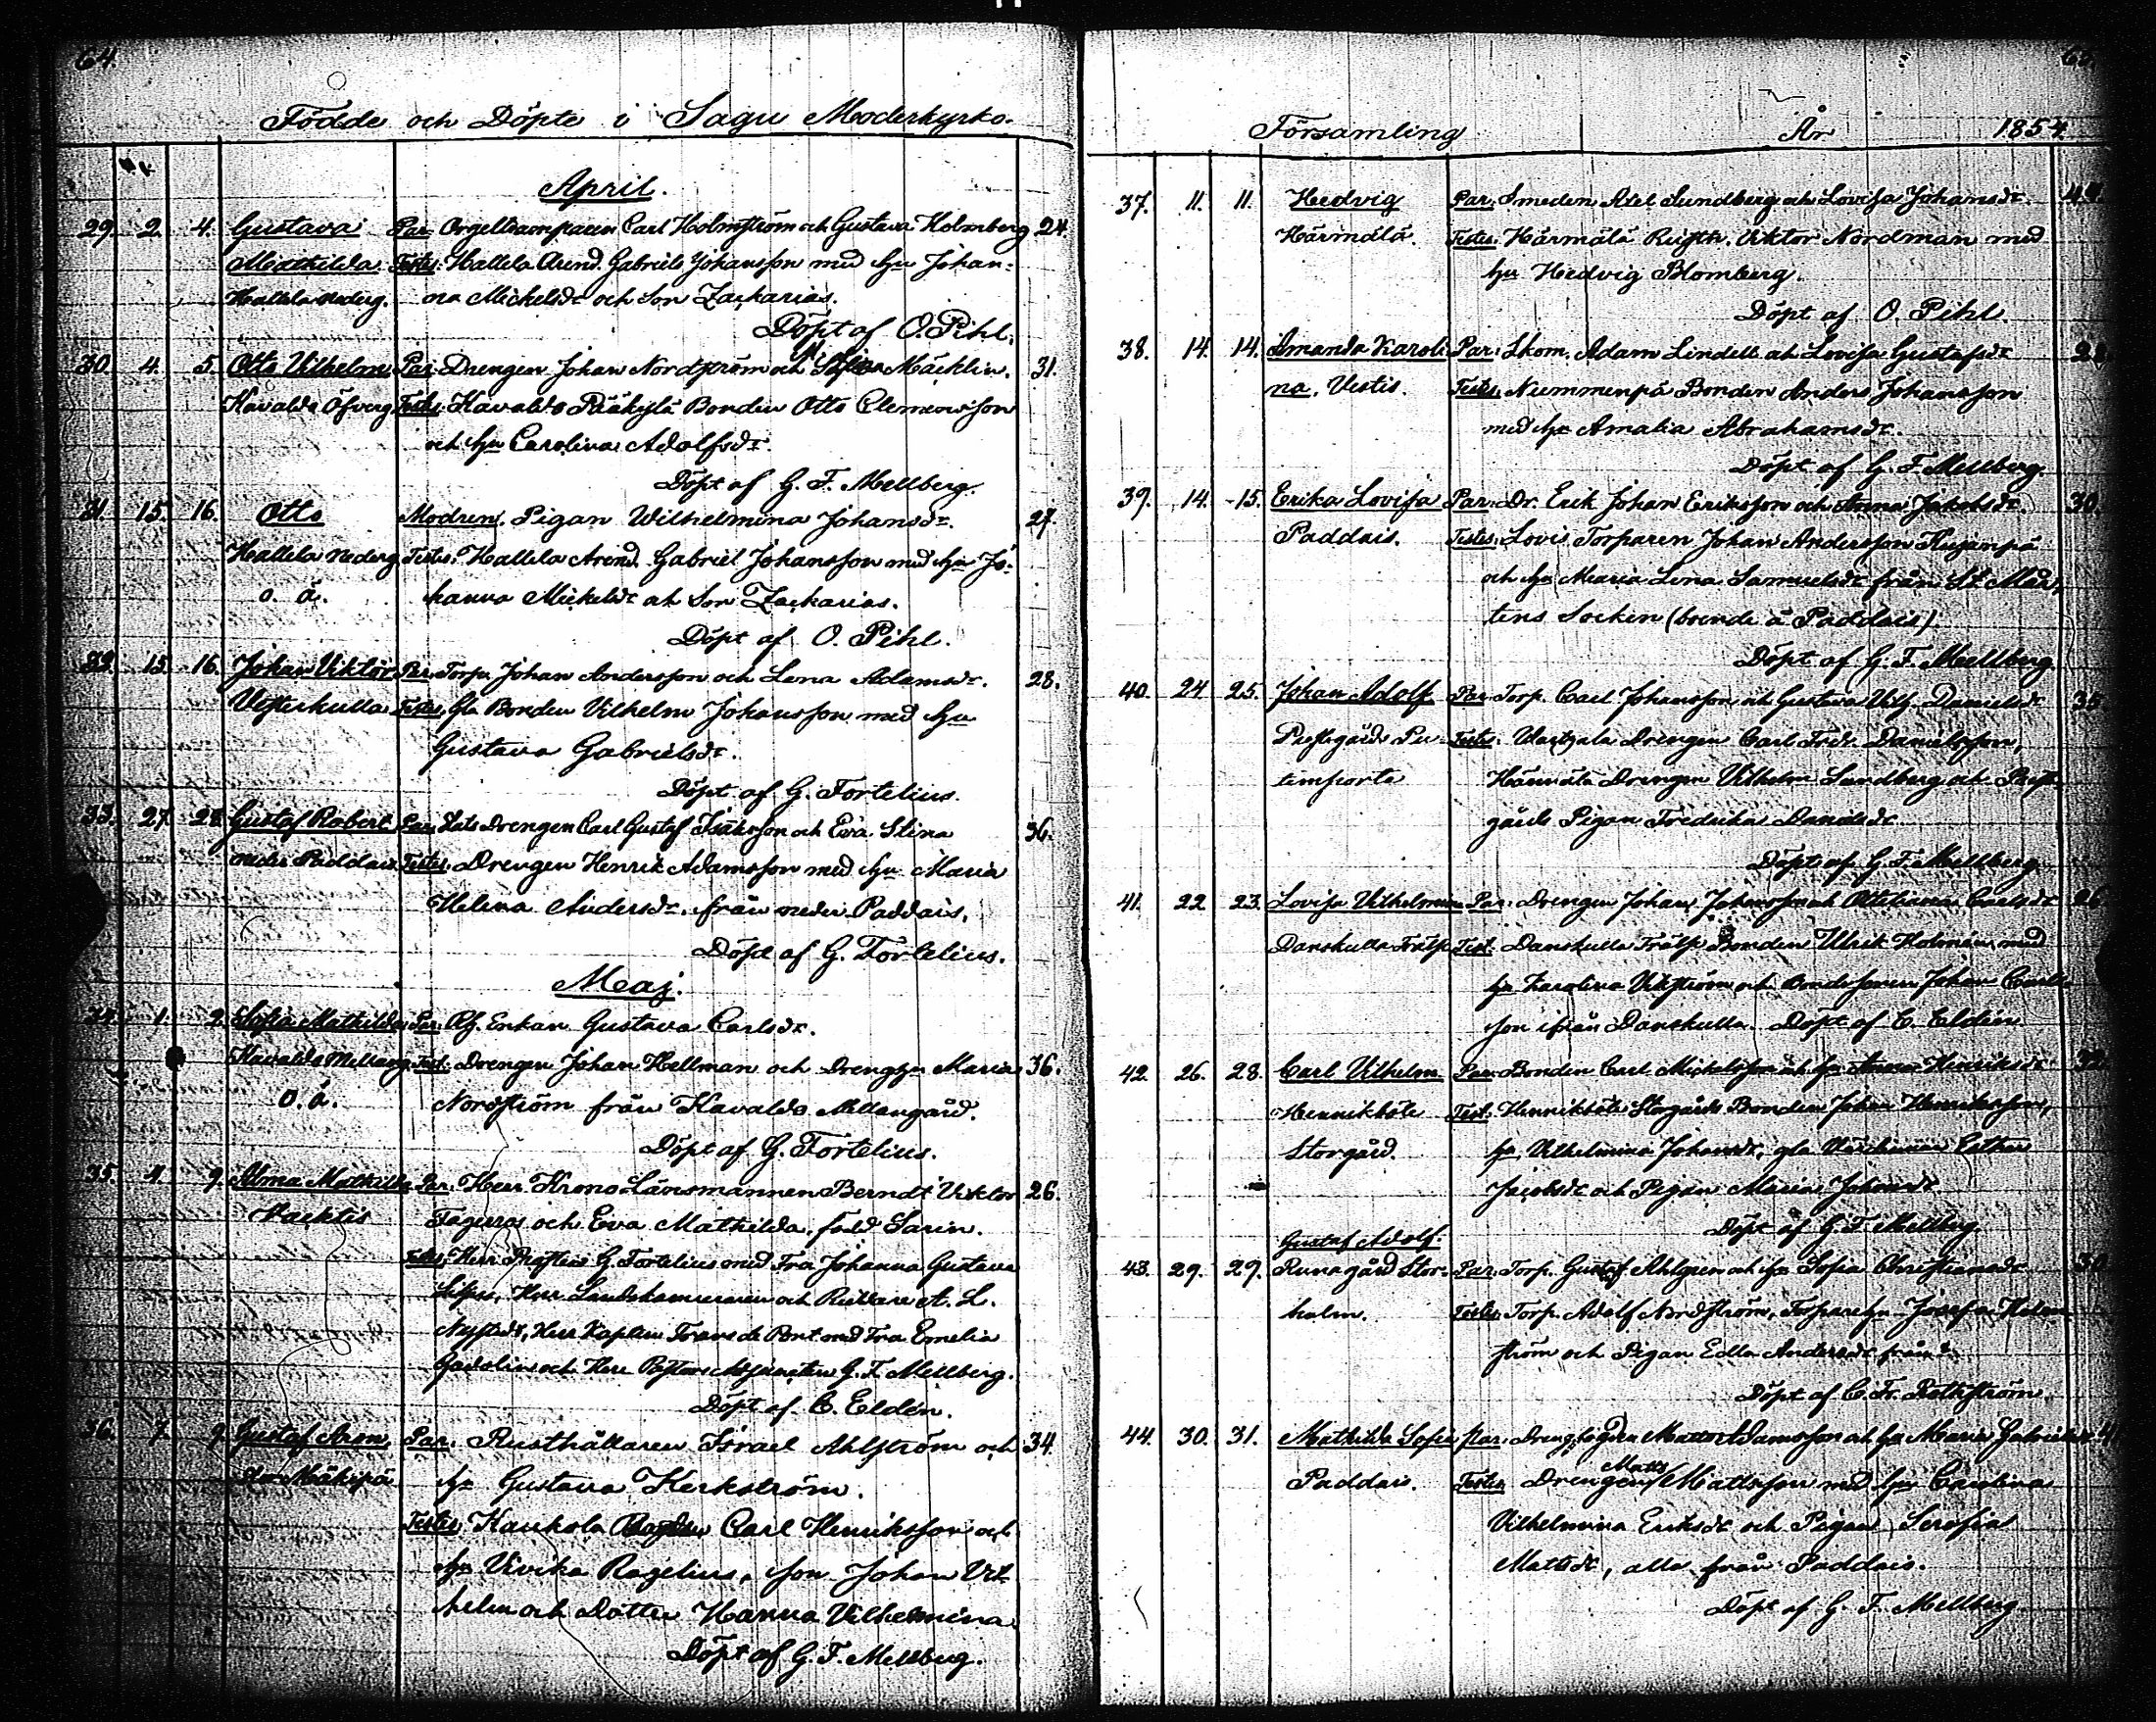 64.
Födde och Döpte i Sagu Moderkyrko-
April.
29. 2. 4. Gustava Par. Orgeltramparen Carl Holmström och Gustava Holmberg 24.
Mathilda Testes: Hallela Arend. Gabriels Johansson med hu Johan-
Hallela Nederg. na Mickelsdr och Son Zackarias.
Döpt af O. Pihl.
30. 4. 5. Otto Vilhelm Par. Drengen Johan Nordström och Mäcklin. 31.
Kavaldo Öfverg. Testes: Kavaldo Pääkylä Bonden Otto Clemensson
och hu Carolina Adolfsdr.
Döpt af G. F. Mellberg.
31. 15. 16. Otto Modren. Pigan Wilhelmina Johansdr. 27.
Hallela Nederg. Testes: Hallela Arend. Gabriel Johansson med hu Jo-
o. ä. hanna Mickelsdr och Son Zackarias.
Döpt af O. Pihl.
32. 15. 16. Johan Viktor Par. Torp. Johan Andersson och Lena Adamsdr. 28.
Vesterkulla Testes: Gla Bonden Vilhelm Johansson med hu
Gustava Gabrielsdr.
Döpt af G. Fortelius.
33. 27. 28. Gustaf Robert Par. Stats Drengen Carl Gustaf Isaksson och Eva Stina 36.
neder Paddais Testes: Drengen Henrik Adamsson med hu Maria
Helena Andersdr. från neder Paddais.
Döpt af G. Fortelius.
Maj.
34. 1. 2. Sofia Mathilda Par. Afs. Enkan Gustava Carlsdr.
Kavaldo Mellang. Test. Drengen Johan Hellman och Dreng hu Maria 36.
o. ä. Nordström från Kavaldo Mellangård.
Döpt af G. Fortelius.
35. 4. 9. Alma Mathilda Par. Herr Krono Länsmannen Berndt Viktor 26.
Kacktis Fagerros och Eva Mathilda, född Sarin.
Testes: Herr Prosten G. Fortelius med Fru Johanna Gustava
Herr Landskamreraren och Riddare A. L.
Nystedt, Herr Kapten Frans de Pont med Fru Emelia
Gadolin och Herr Pastors Adjuncten G. F. Mellberg.
Döpt af C. Eldén.
36. 7. 9. Gustaf Aron, Par. Rusthållaren Israel Ahlström och 34.
Mäkipä hu Gustava Kerkström.
Testes Kaukola Bonden Carl Henriksson och
hu Vivika Rägelius, son Johan Vil-
helm och Dotter Hanna Vilhelmina
Döpt af G. F. Mellberg.
65.
Församling År 1854.
37. 11. 11. Hedvig Par. Smeden Axel Sundberg och Lovisa Johansdr. 44.
Härmälä. Testes: Härmälä Rusth. Viktor Nordman med
hu Hedvig Blomberg.
Döpt af O. Pihl.
38. 14. 14. Amanda Karoli- Par: Skom. Adam Lindell och Lovisa Gustafsdr
na, Vestis. Testes: Nummenpä Bonden Anders Johansson
med hu Amalia Abrahamsdr.
Döpt af G. F. Mellberg.
39. 14. 15. Erika Lovisa Par. Dr. Erik Johan Eriksson och Anna Jakobsdr. 30.
Paddais. Testes: Lovis Torparen Johan Andersson
och hu Maria Lena Samuelsdr från St Mår-
tens Socken (boende ä Paddais)
Döpt af G. F. Mellberg.
40. 24 25. Johan Adolf Par. Torp. Carl Johansson och Gustava Vilh. Danielsdr 35
Prestgårds Testes: Drengen Carl Fredr. Danielsson,
Härmälä Drengen Vilhelm Sundberg och Prest-
gårds Pigan Fredrika Danielsdr
Döpt af G. F. Mellberg
41. 22 23. Lovisa Vilhelmina Par. Drengen Johan Johansson och Ottiliana Carlsdr 26
Danskulla Frälse Test. Danskulla Frälse Bonden Ulrik Holmén med
hu Karolina Vikström och Bondesonen Johan Carls-
son ifrån Danskulla. Döpt af C. Eldén
42. 26. 28. Carl Vilhelm Par. Bonden Carl Michelsson och hu Anna Henriksdr 32.
Henriksböle Test. Henriksböle Storgårds Bonden Johan Henriksson,
Storgård. hu Vilhelmina Johansdr, gla Värdinnan Esther
Jacobsdr och Pigan Maria Johansdr
Döpt af G. F. Mellberg
Gustaf Adolf.
43. 29. 29. Runagård Stor- Par. Torp. Gustaf Ahlgren och hu Sofia Christiansdr 30
holm. Testes: Torp. Adolf Nordström, Torpare hu Josefa Holm-
ström och Pigan Edla Andersdr från
Döpt af C. Fr. Rothström.
44. 30. 31. Mathilda Sofia Par. Matts Adamsson och hu Maria Gabrielsdr
Paddais. Testes Drengen Matts Mattsson med hu Carolina
Vilhelmina Eriksdr och Pigan Serafia
Mattsdr, alla från Paddais.
Döpt af G. F. Mellberg